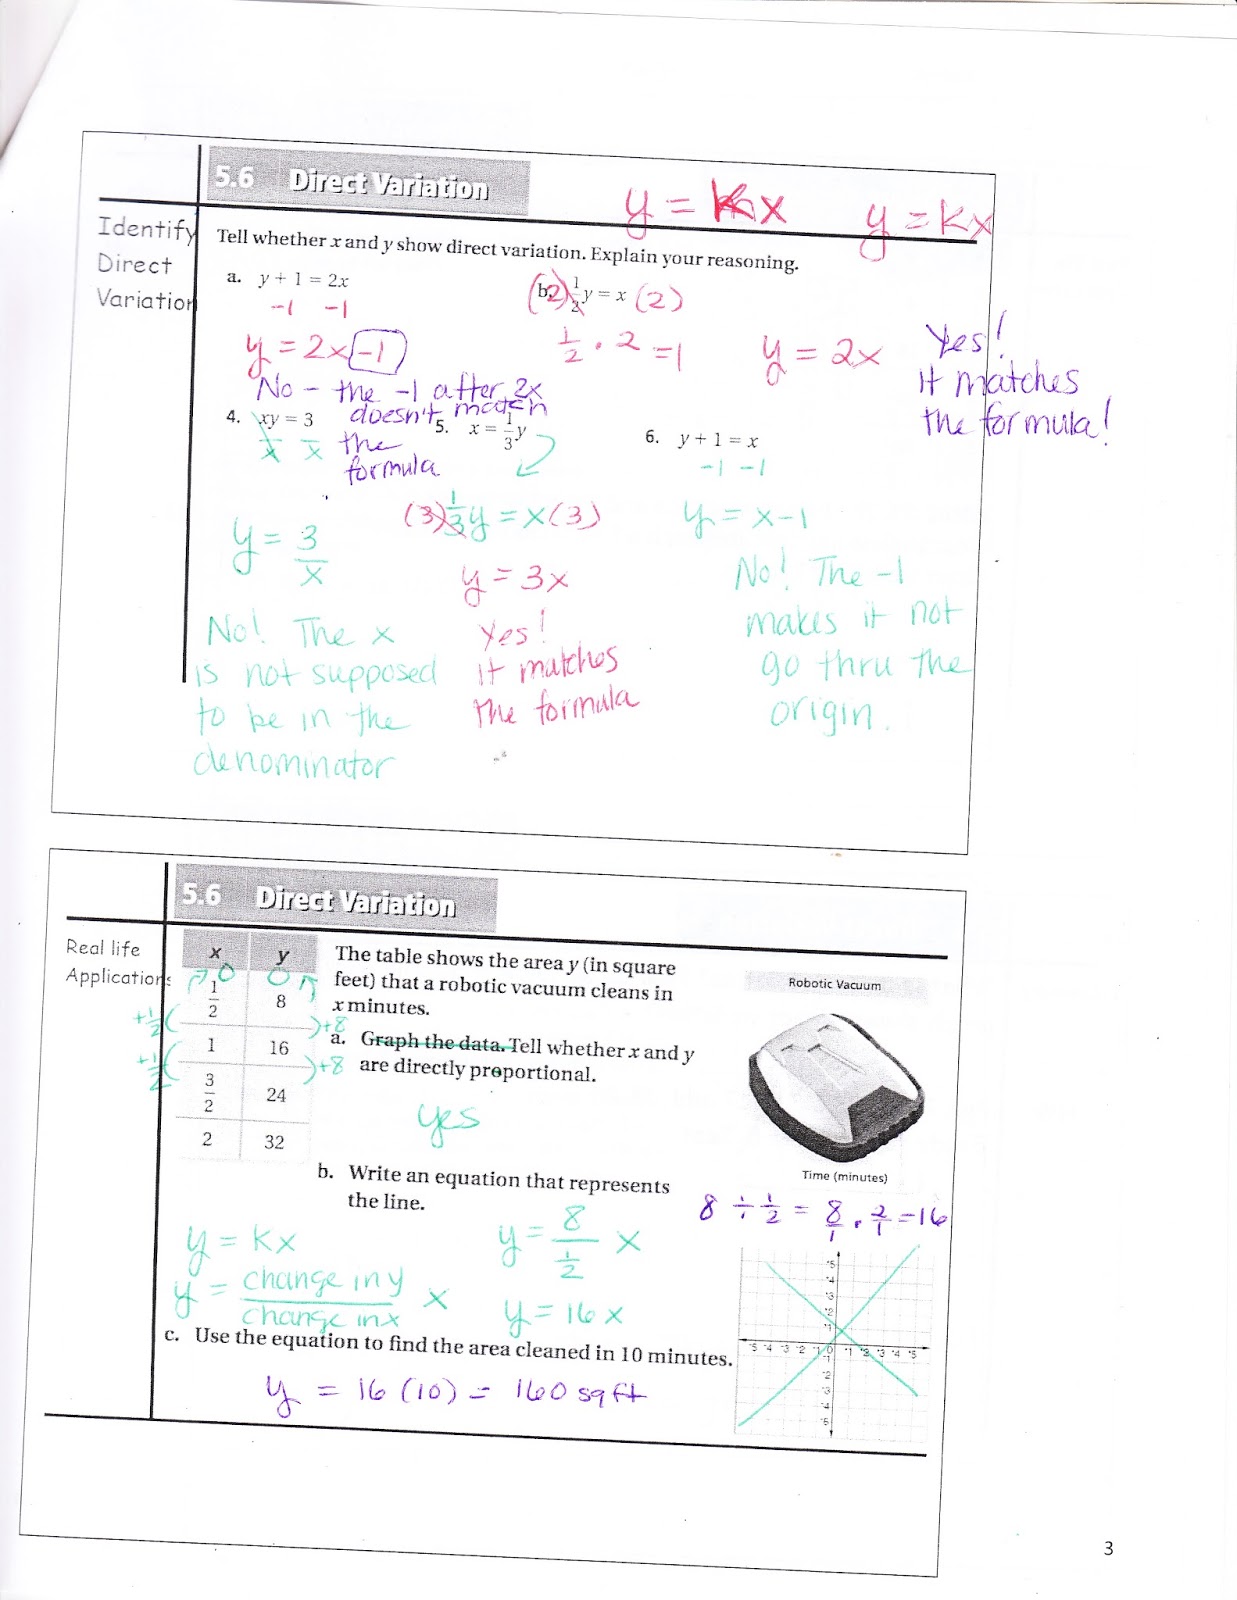 5.6 Direct Variation
y = kx y = kx
Identify
Direct
Variation
Tell whether x and y show direct variation. Explain your reasoning.
a. y + 1 = 2x
-1 -1
y = 2x -1
No - the -1 after 2x
doesn't match
the
formula
(2) b. 1/2 y = x (2)
1/2 · 2 = 1
y = 2x
Yes!
it matches
the formula!
4. xy = 3
x x
y = 3/x
No! The x
is not supposed
to be in the
denominator
5. x = 1/3 y
(3) 1/3 y = x (3)
y = 3x
Yes!
it matches
the formula
6. y + 1 = x
-1 -1
y = x - 1
No! The -1
makes it not
go thru the
origin.
5.6 Direct Variation
Real life
Applications
x y
0 0
1/2 8
1 16
3/2 24
2 32
+1/2 +8
+1/2 +8
The table shows the area y (in square
feet) that a robotic vacuum cleans in
x minutes.
a. Graph the data. Tell whether x and y
are directly proportional.
yes
Robotic Vacuum
Time (minutes)
b. Write an equation that represents
the line.
8 ÷ 1/2 = 8/1 · 2/1 = 16
y = kx
y = change in y / change in x x
y = 8 / 1/2 x
y = 16x
c. Use the equation to find the area cleaned in 10 minutes.
y = 16 (10) = 160 sq ft
3